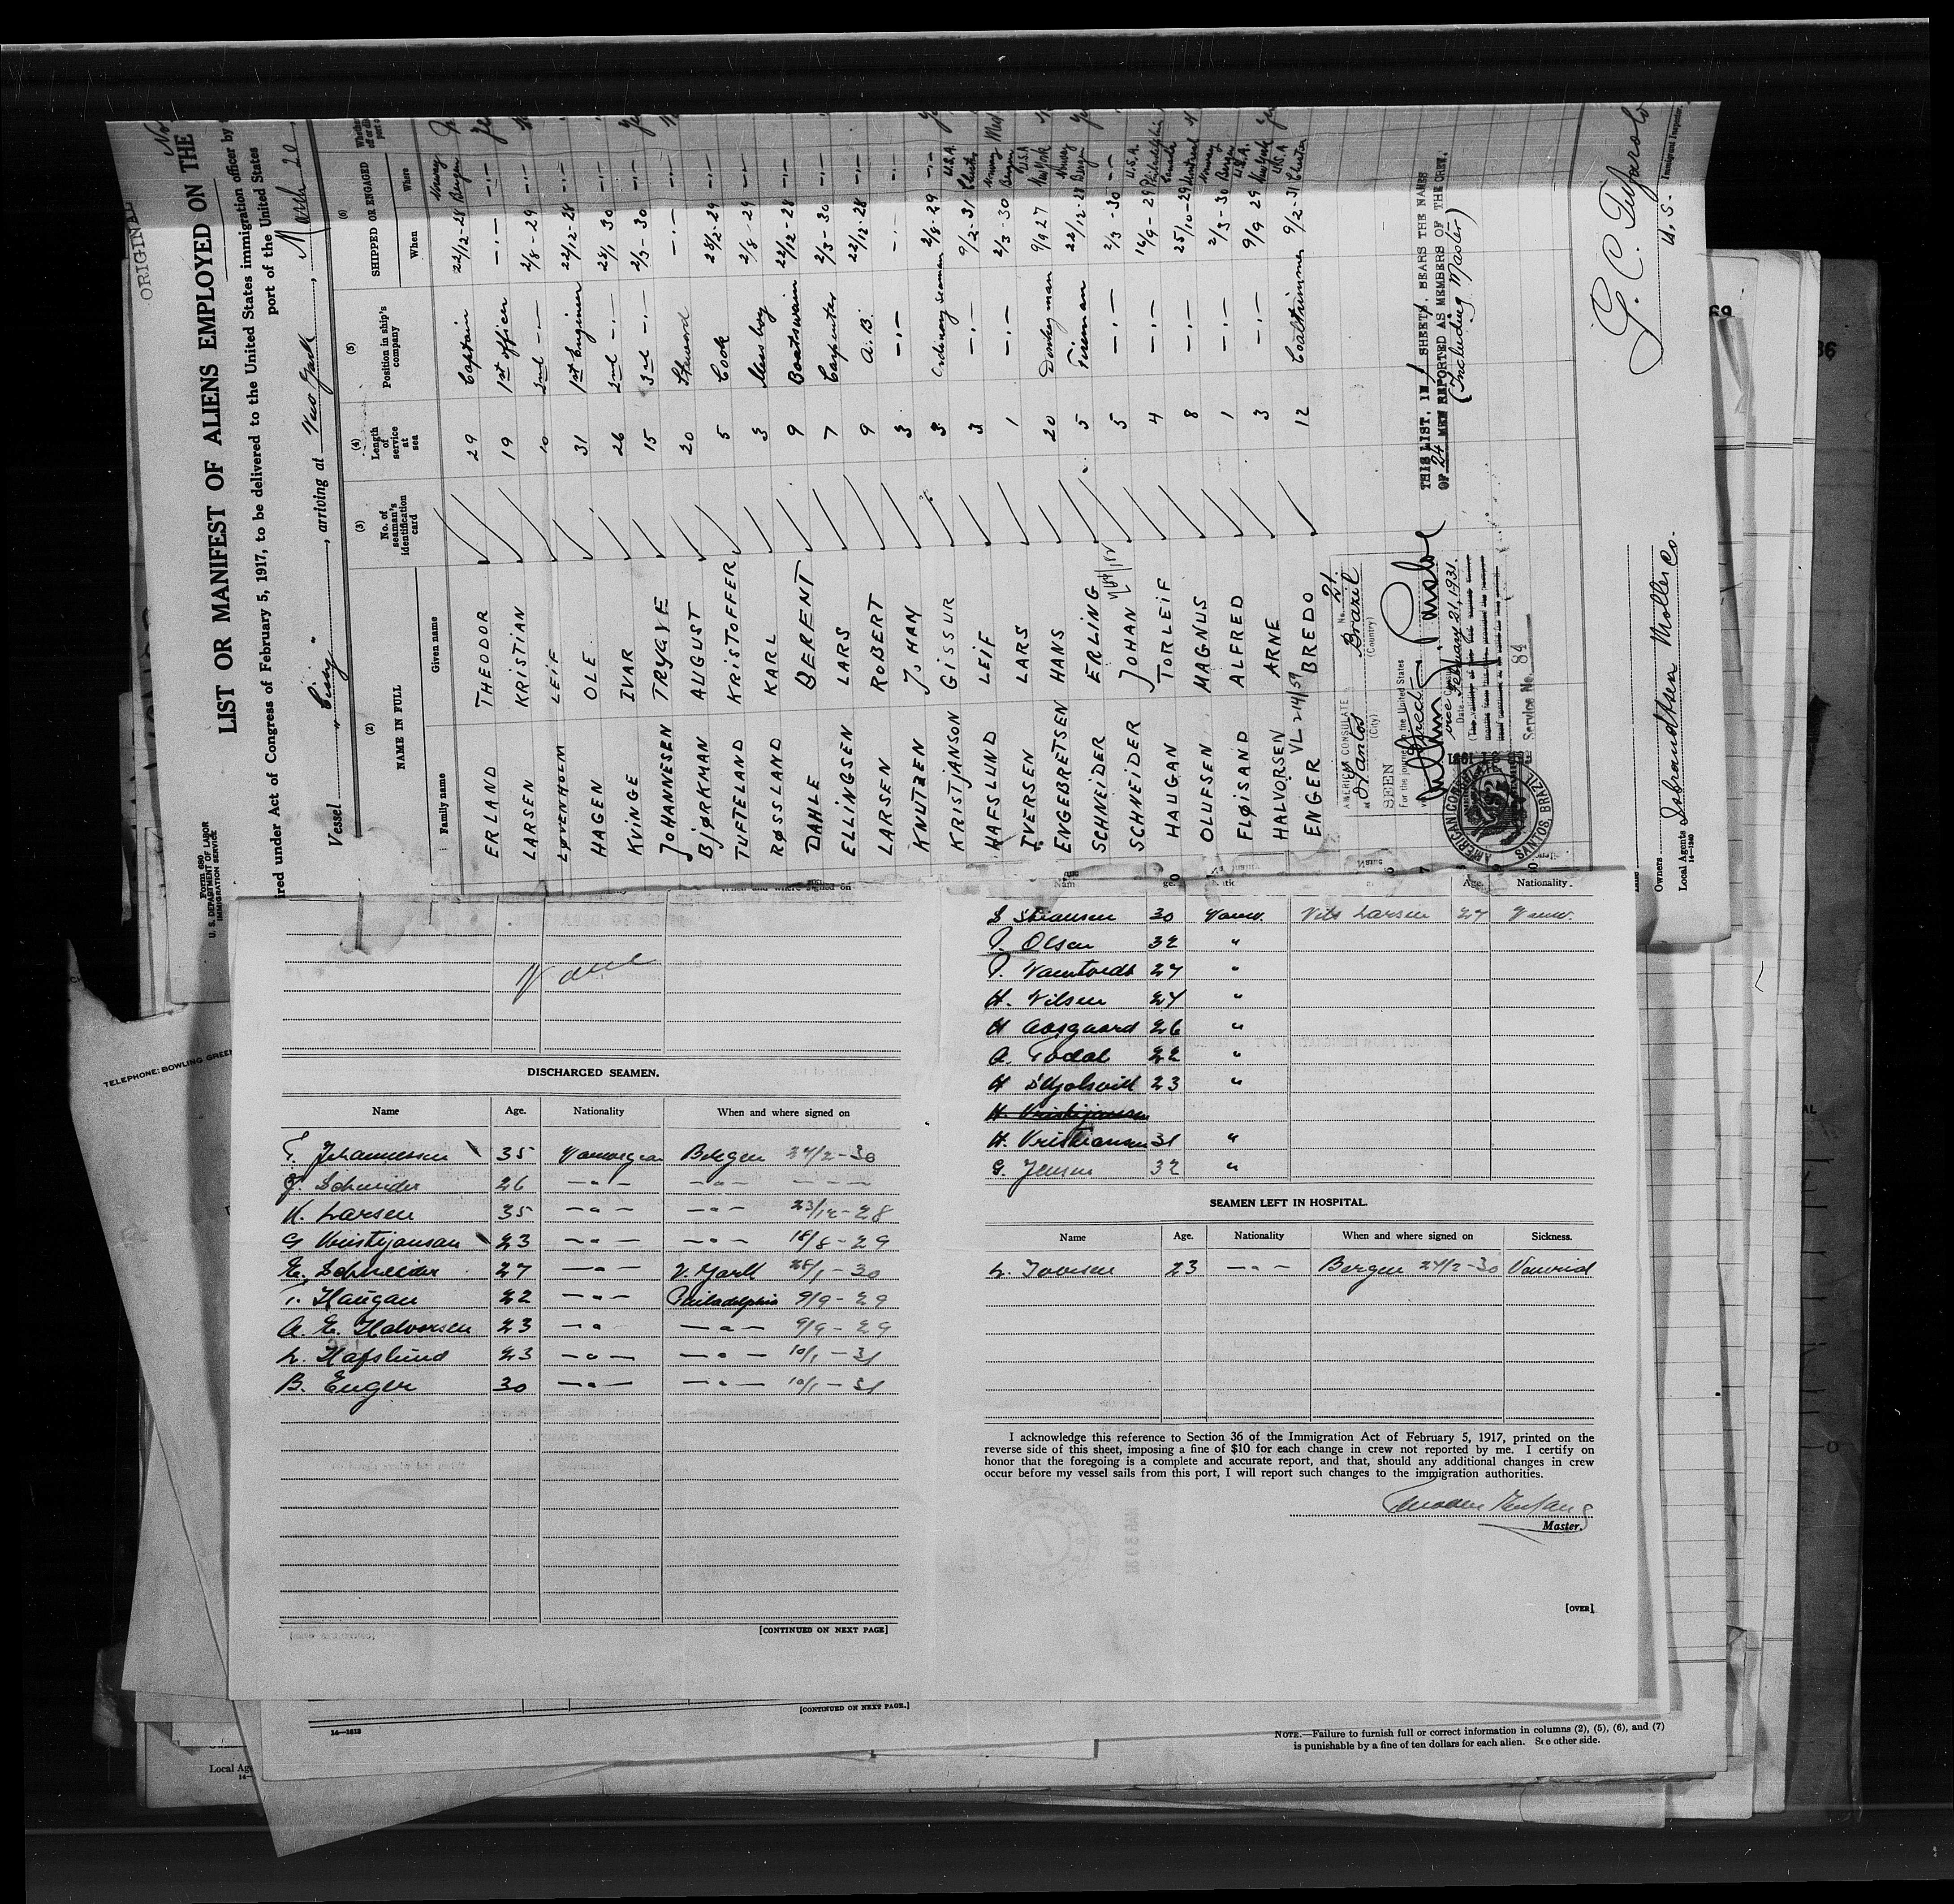 ORIGINAL
LIST OR MANIFEST OF ALIENS EMPLOYED ON THE
ired under Act of Congress of February 5, 1917, to be delivered to the United States immigration officer by
port of the United States
Vessel , arriving at New York , March 20,
Form 680
U. S. DEPARTMENT OF LABOR
IMMIGRATION SERVICE
(2) (3) (4) (5) (6)
NAME IN FULL No. of seaman's identification card Length of service at sea Position in ship's company SHIPPED OR ENGAGED
Family name Given name When Where
ERLAND THEODOR 29 Captain 22/12-28 Norway Bergen
LARSEN KRISTIAN 19 1st officer —"—
LØVENHOLM LEIF 10 2nd —"— 2/8-29 —"—
HAGEN OLE 31 1st Engineer 22/12-28 —"—
KVINGE IVAR 26 2nd —"— 28/1 30 —"—
JOHANNESEN TRYGVE 15 3rd —"— 2/3-30 —"—
BJØRKMAN AUGUST 20 Steward —"— —"—
TUFTELAND KRISTOFFER 5 Cook 28/2-29 —"—
RØSSLAND KARL 3 Mess boy 2/8-29 —"—
DAHLE BERENT 9 Boatswain 22/12-28 —"—
ELLINGSEN LARS 7 Carpenter 2/3-30 —"—
LARSEN ROBERT 9 A.B. 22/12-28 —"—
KNUTZEN JOHAN 3 —"— —"— —"—
KRISTJANSON GISSUR 3 Ordinary seaman 2/8-29 —"—
HAFSLUND LEIF 3 —"— 9/2-31 U.S.A. Chester
IVERSEN LARS 1 —"— 2/3-30 Norway Bergen
ENGEBRETSEN HANS 20 Donkeyman 9/9 27 U.S.A New York
SCHNEIDER ERLING 5 Fireman 22/12-28 Norway Bergen
SCHNEIDER JOHAN 5 —"— 2/3-30 —"—
HAUGAN TORLEIF 4 —"— 16/9-29 U.S.A. Philadelphia
OLUFSEN MAGNUS 8 —"— 25/10-29 Canada Montreal
FLØISAND ALFRED 1 —"— 2/3-30 Norway Bergen
HALVORSEN ARNE 3 —"— 9/9 29 U.S.A. New York
ENGER BREDO 12 Coaltrimmer 9/2-31 U.S.A Chester
VL 214/59
AMERICAN CONSULATE No. 21.
at Santos Brazil
(City) (Country)
SEEN
For the journey to the United States
Date February 21, 1931.
Service No. 84
AMERICAN CONSULATE
SANTOS, BRAZIL
THIS LIST, IN 1 SHEETS, BEARS THE NAMES
OF 24 MEN REPORTED AS MEMBERS OF THE CREW.
(Including Master)
U. S. Immigrant Inspector.
Owners
Local Agents Isbrandtsen Moller Co.
14—1240
TELEPHONE: BOWLING GREEN
DISCHARGED SEAMEN.
Name Age. Nationality When and where signed on
T. Johannessen 35 Norwegian Bergen 27/2-30
J. Schneider 26 —"— —"— —"—
K. Larsen 35 —"— —"— 23/12-28
G Kristjansan 23 —"— —"— 18/8-29
E. Schneider 27 —"— N. York 28/1-30
T. Haugan 22 —"— Philadelphia 9/9-29
A. E. Halvorsen 23 —"— —"— 9/9-29
L. Hafslund 23 —"— —"— 10/1-31
B. Enger 30 —"— —"— 10/1-31
[CONTINUED ON NEXT PAGE]
Nationality.
30 Norw. Nils Larsen 27 Norw.
P. Olsen 32 "
27 "
H. Nilsen 27 "
H Aasgaard 26 "
A. Todal 22 "
23 "
H. Kristiansen 31 "
G. Jensen 32 "
SEAMEN LEFT IN HOSPITAL.
Name Age. Nationality When and where signed on Sickness.
L. Iversen 23 —"— Bergen 27/2-30
I acknowledge this reference to Section 36 of the Immigration Act of February 5, 1917, printed on the
reverse side of this sheet, imposing a fine of $10 for each change in crew not reported by me. I certify on
honor that the foregoing is a complete and accurate report, and that, should any additional changes in crew
occur before my vessel sails from this port, I will report such changes to the immigration authorities.
Master.
[OVER]
[CONTINUED ON NEXT PAGE.]
14—1613
NOTE.—Failure to furnish full or correct information in columns (2), (5), (6), and (7)
is punishable by a fine of ten dollars for each alien. See other side.
Local Age